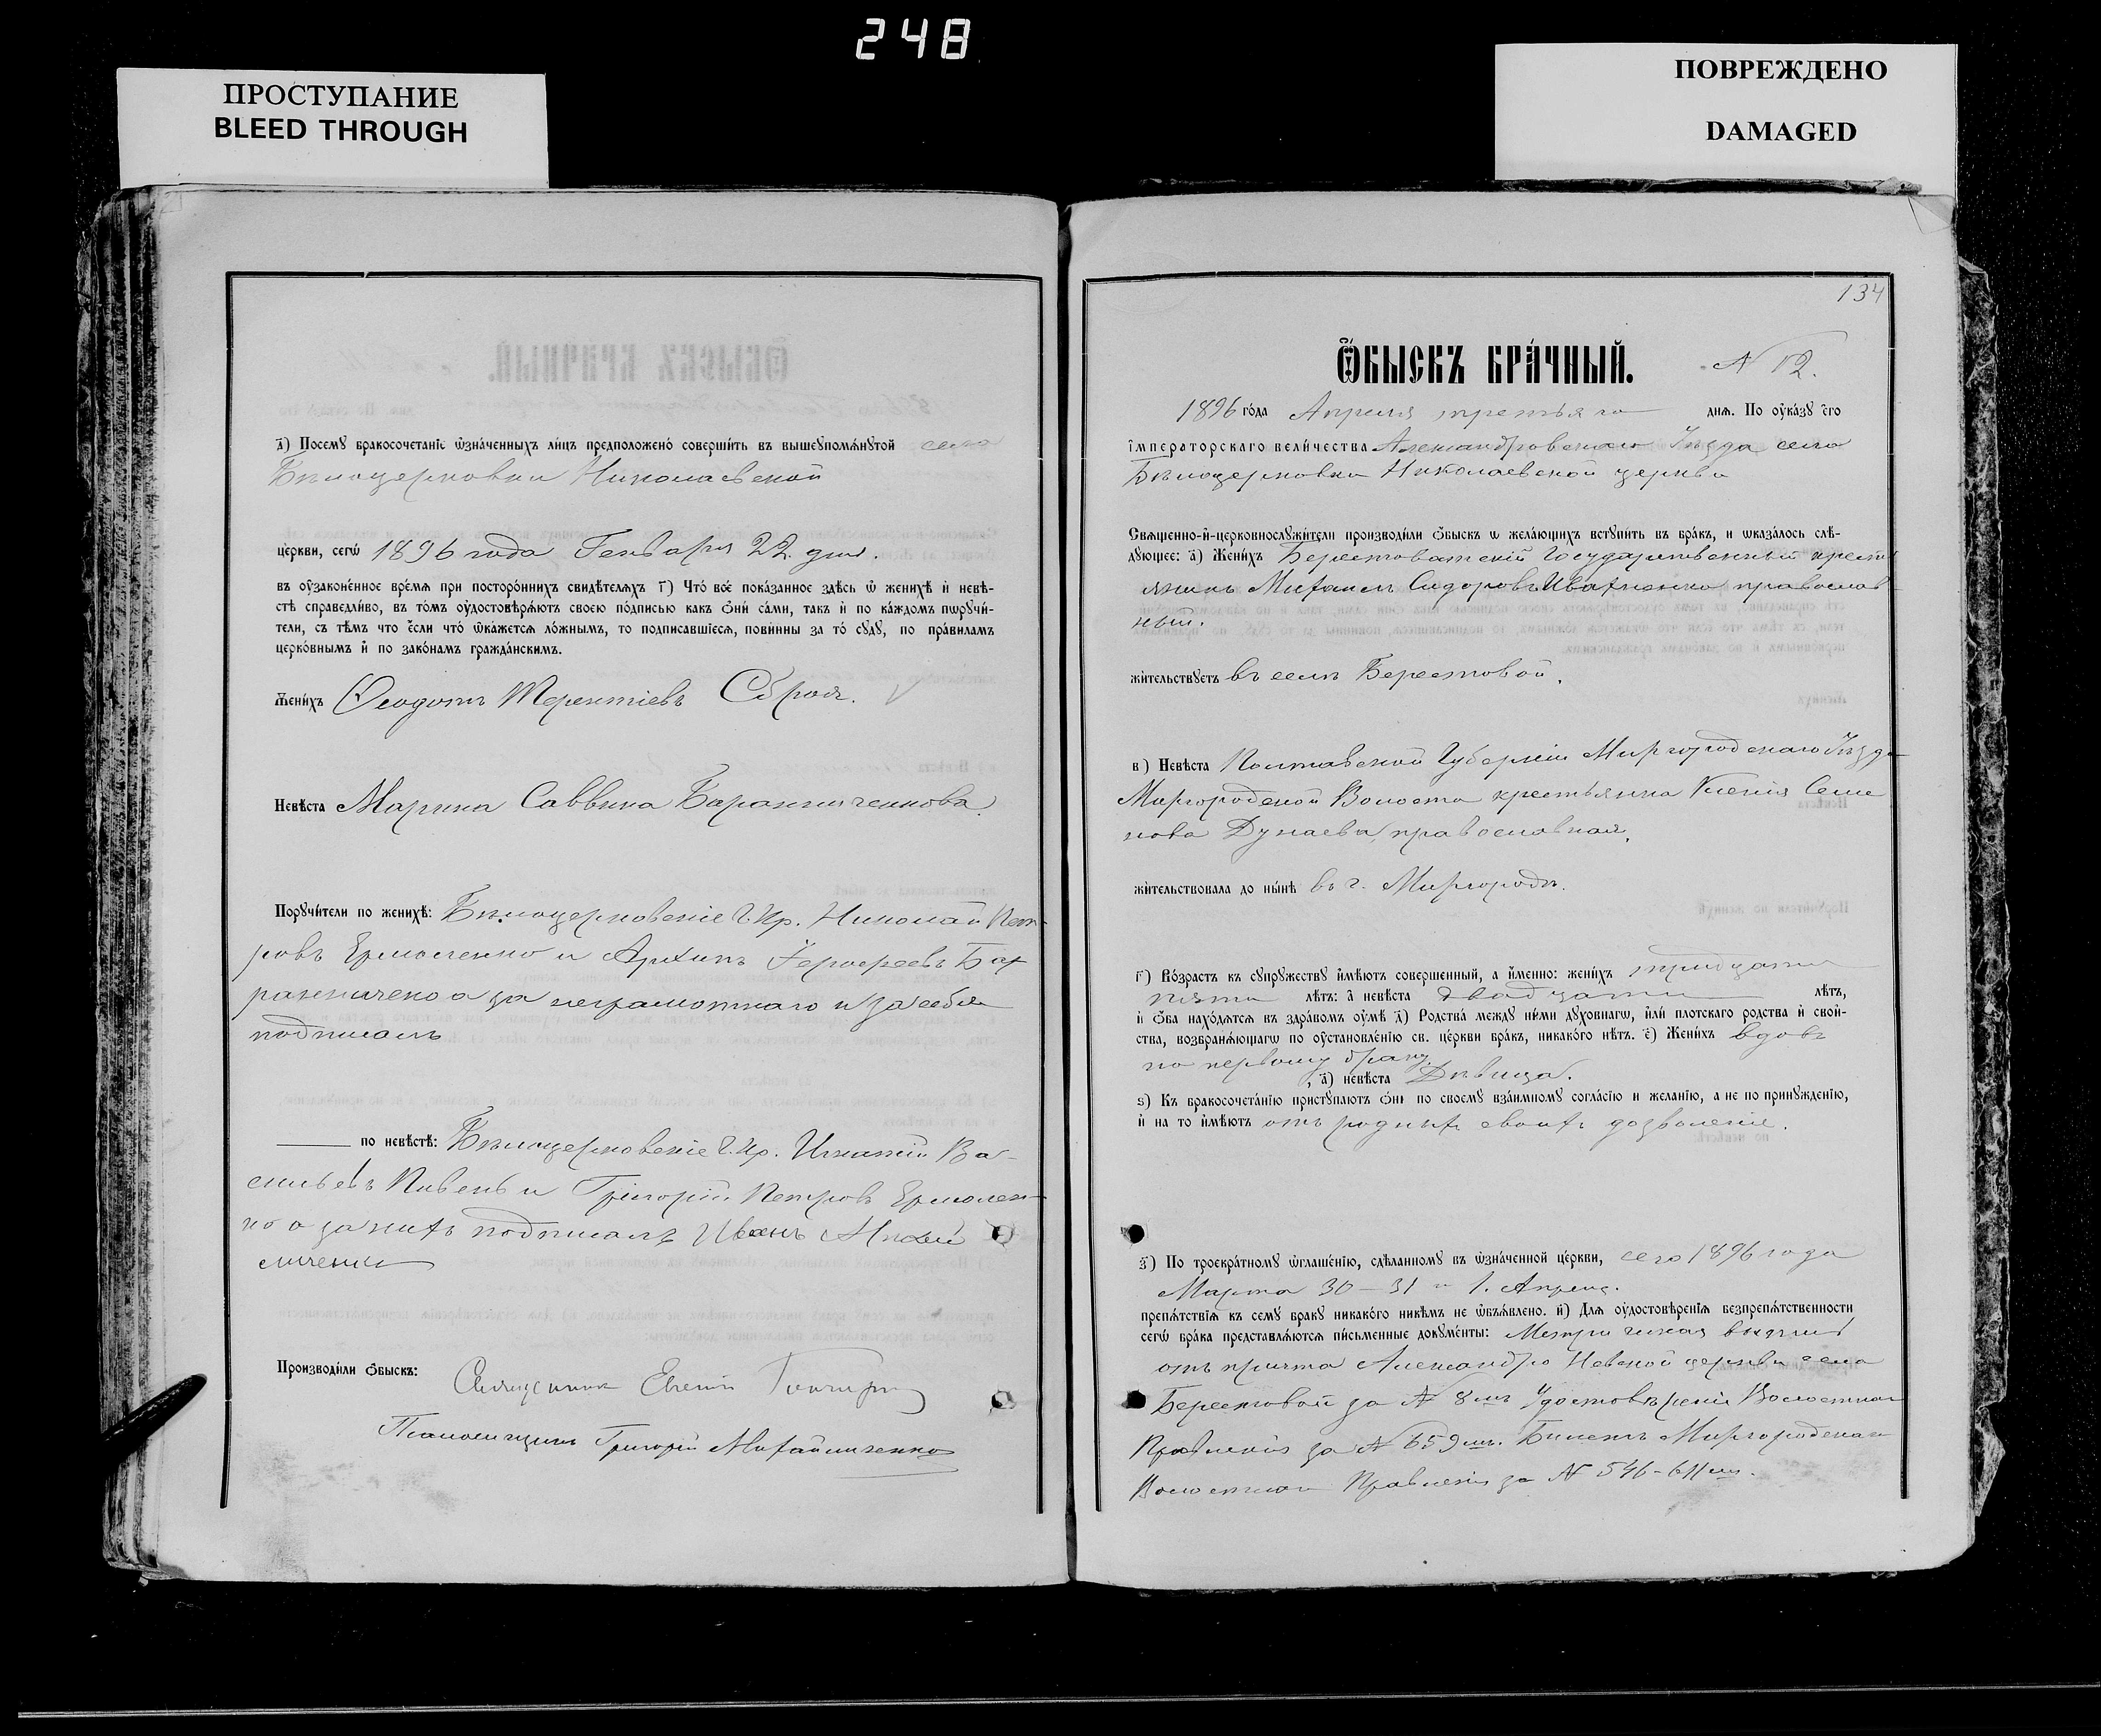 248
ПРОСТУПАНИЕ
BLEED THROUGH
ПОВРЕЖДЕНО
DAMAGED
д҃) Посемꙋ бракосочетаніе ѡзна́ченныхъ ли́цъ предположено̀ соверши́ть въ вышеꙋпомѧ́нꙋтой села
Бѣлоцерковки Николаевской
це́ркви, сегѡ̀ 1896 года Генваря 22 дня.
въ оу҆законе́нное вре́мѧ при посторо́ннихъ свидѣ́телѧхъ г҃) Что̀ всѐ пока́занное здѣ́сь ѡ҆ женихѣ̀ и҆ невѣ́-
стѣ справедли́во, въ то́мъ оу҆достовѣрѧ́ютъ своею по́дписью какъ ѻ҆нѝ са́ми, такъ и҆ по ка́ждомъ пѡрꙋчи́-
тели, съ тѣ́мъ что е҆сли что̀ ѡ҆ка́жетсѧ ло́жнымъ, то подписавшіесѧ, пови́нны за то̀ сꙋдꙋ, по пра́виламъ
церко́внымъ и҆ по зако́намъ гражда́нскимъ.
Жени́хъ Ѳеодотъ Терентіевъ
Невѣ́ста Марина Саввина Баранниченкова
Порꙋчи́тели по женихѣ̀: Бѣлоцерковскіе Г. Кр. Николай Пет-
ровъ Ермоленко и Архипъ
а за неграмотнаго и за себя
подписалъ
по невѣ́стѣ: Бѣлоцерковскіе Г. Кр. Игнатій Ва-
сильевъ Пивень и Григорій Петровъ Ермолен-
ко а за нихъ подписалъ Иванъ
Производи́ли ѻ҆́быскъ: Священникъ Евгеній
Псаломщикъ Григорій Михайличенко
134
Ѻ҆́БЫСКЪ БРА́ЧНЫЙ. № 12.
1896 го́да Апреля третьяго днѧ. По оу҆ка́зꙋ е҆гѡ̀
і҆мператорскаго вели́чества Александровскаго Уезда села
Бѣлоцерковки Николаевской церкви
Свѧщенно-и҆-церковнослꙋжи́тели производи́ли ѻ҆́быскъ ѡ҆ жела́ющихъ встꙋпи́ть въ бра́къ, и ѡказа́лось слѣ́-
дꙋющее: а҃) Жени́хъ Берестоватскій Государственный кресть
янинъ Михаилъ Сидоровъ Ивахненко православ
ный.
жи́тельствꙋетъ въ селѣ Берестовой.
в҃) Невѣ́ста Полтавской Губерніи Миргородскаго Уѣзда
Миргородской Волости крестьянка Ксенія Семе
нова Дунаева, православная.
жи́тельствовала до ны́нѣ въ г. Миргородѣ.
г҃) Во́зрастъ къ сꙋпрꙋжествꙋ и҆мѣ́ютъ соверше́нный, а и҆́менно: жени́хъ тридцати
пяти лѣ́тъ: а҆ невѣ́ста двадцати лѣ́тъ,
и҆ ѻ҆́ба нахо́дѧтсѧ въ здра́вомъ оу҆мѣ̀ д҃) Родства̀ междꙋ ни́ми дꙋхо́внагѡ, и҆лѝ плотскаго родства̀ и҆ свой-
ства̀, возбранѧ́ющагѡ по оу҆становле́нію св. це́ркви бра́къ, никако́го нѣ́тъ. е҃) Жени́хъ вдовъ
по первому браку
, а҆) невѣ́ста Дѣвица.
ѕ҃) Къ бракосочета́нію пристꙋпа́ютъ ѻ҆нѝ по своемꙋ взаи́мномꙋ согла́сію и жела́нію, а не по принꙋжде́нію,
и҆ на то и҆мѣ́ютъ отъ родныхъ своихъ дозволеніе.
з҃) По троекра́тномꙋ ѡ҆глаше́нію, сдѣ́ланномꙋ въ ѡ҆зна́ченной це́ркви, сего 1896 года
Марта 30 - 31 и 1. Апреля.
препѧ́тствіѧ къ семꙋ бракꙋ никако́го никѣ́мъ не ѡ҆б̾ѧ́влено. и҃) Длѧ оу҆достовѣ́ренія безпрепѧ́тственности
сегѡ̀ бра́ка представлѧ́ютсѧ пи́сьменные докꙋме́нты: Метрическая выпись
отъ причта Александро Невской церкви села
Берестовой за № 8мъ Удостовѣреніе Волостнаго
Правленія за № 659мъ. Билетъ Миргородскаго
Волостнаго Правленія за № 546-611мъ.